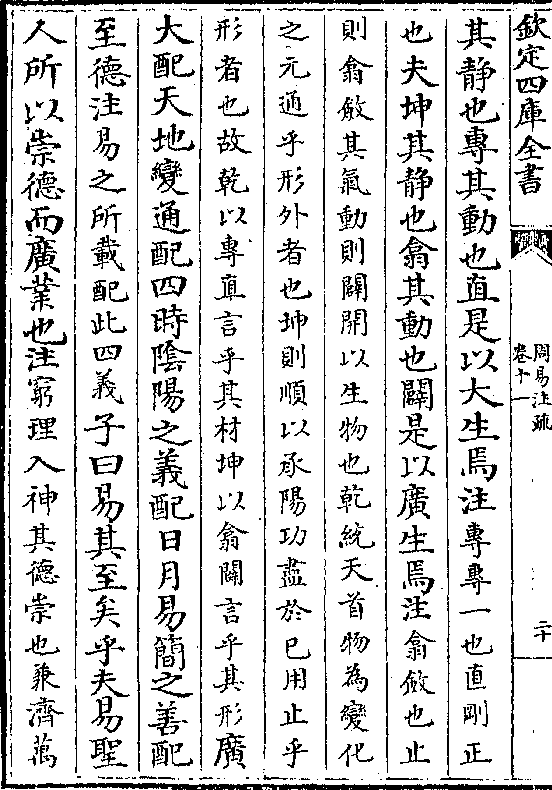 欽定四庫全書
周易注疏
卷十一
二十
其静也專其動也直是以大生焉注專專一也直剛正
也夫坤其静也翕其動也闢是以廣生焉注翕斂也止
則翕斂其氣動則闢開以生物也乾統天首物為變化
之元通乎形外者也坤則順以承陽功盡於已用止乎
形者也故乾以專直言乎其材坤以翕闢言乎其形廣
大配天地變通配四時陰陽之義配日月易簡之善配
至德注易之所載配此四義子曰易其至矣乎夫易聖
人所以崇德而廣業也注窮理入神其德崇也兼濟萬